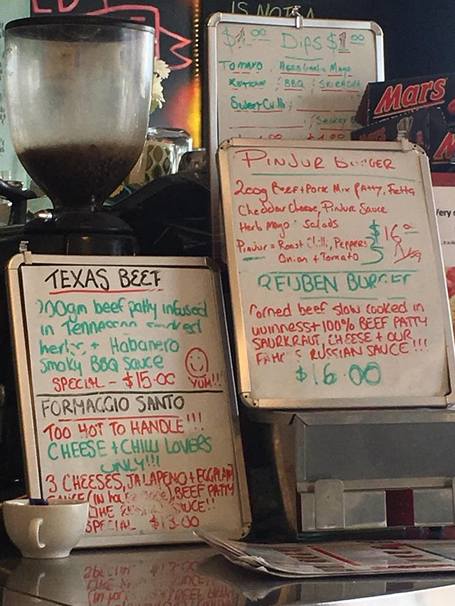 IS NOT A
$1.00 DIPS $1.00
TOMATO, Herb Garlic Mayo
KETCHUP, BBQ, SRIRACHA
Sweet Chilli,
Mars
PINJUR BURGER
200g Beef+Pork Mix patty, Fetta
Cheddar Cheese, Pinjur Sauce
Herb Mayo, Salads
Pinjur = Roast Chilli, Peppers
Onion + Tomato
$16.00
REUBEN BURGER
Corned beef slow cooked in
Guinness + 100% BEEF PATTY
SAURKRAUT, CHEESE + OUR
RUSSIAN SAUCE !!!
$16.00
TEXAS BEEF
200gm beef patty infused
in Tennessee smoked
herbs + Habanero
Smoky BBQ sauce
SPECIAL - $15.00 YUM!!!
FORMAGGIO SANTO
TOO HOT TO HANDLE!!!
CHEESE + CHILLI LOVERS
ONLY!!!
3 CHEESES, JALAPENO + EGGPLANT
SAUCE (in house), BEEF PATTY
SAUCE!!
SPECIAL $13.00